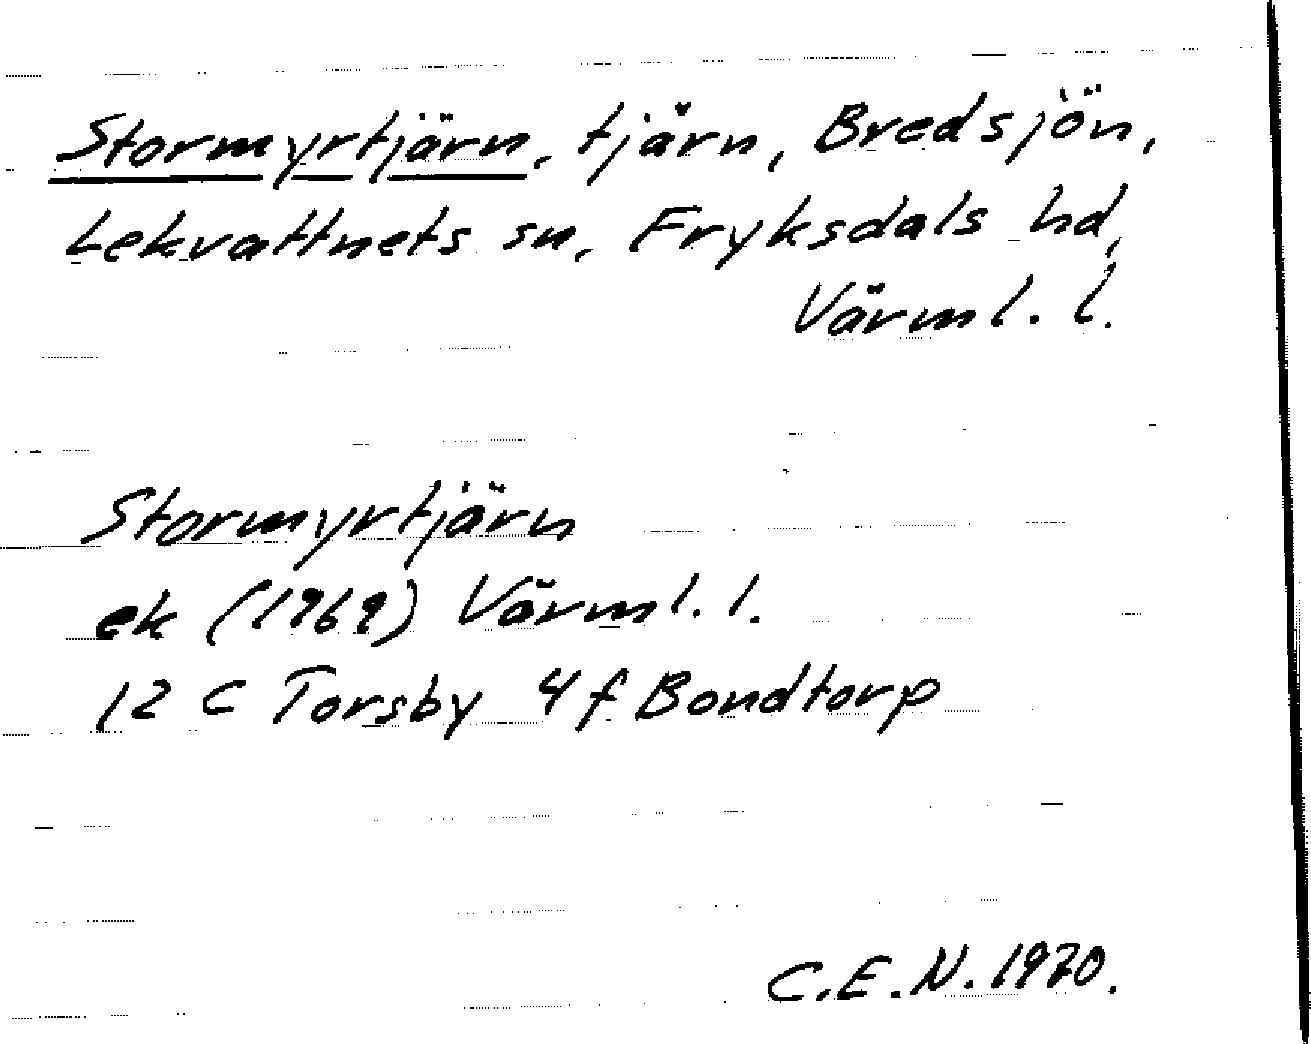 Stormyrtjärn, tjärn, Bredsjön,
Lekvattnets sn, Fryksdals hd,
Värml. l.
Stormyrtjärn
ek (1969) Värml. l.
12 C Torsby 4 f Bondtorp
C.E.N. 1970.